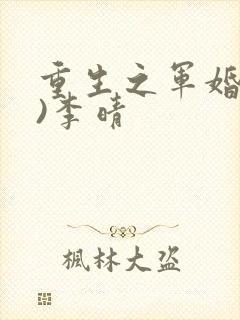 重生之军婚
)李晴
枫林大盗